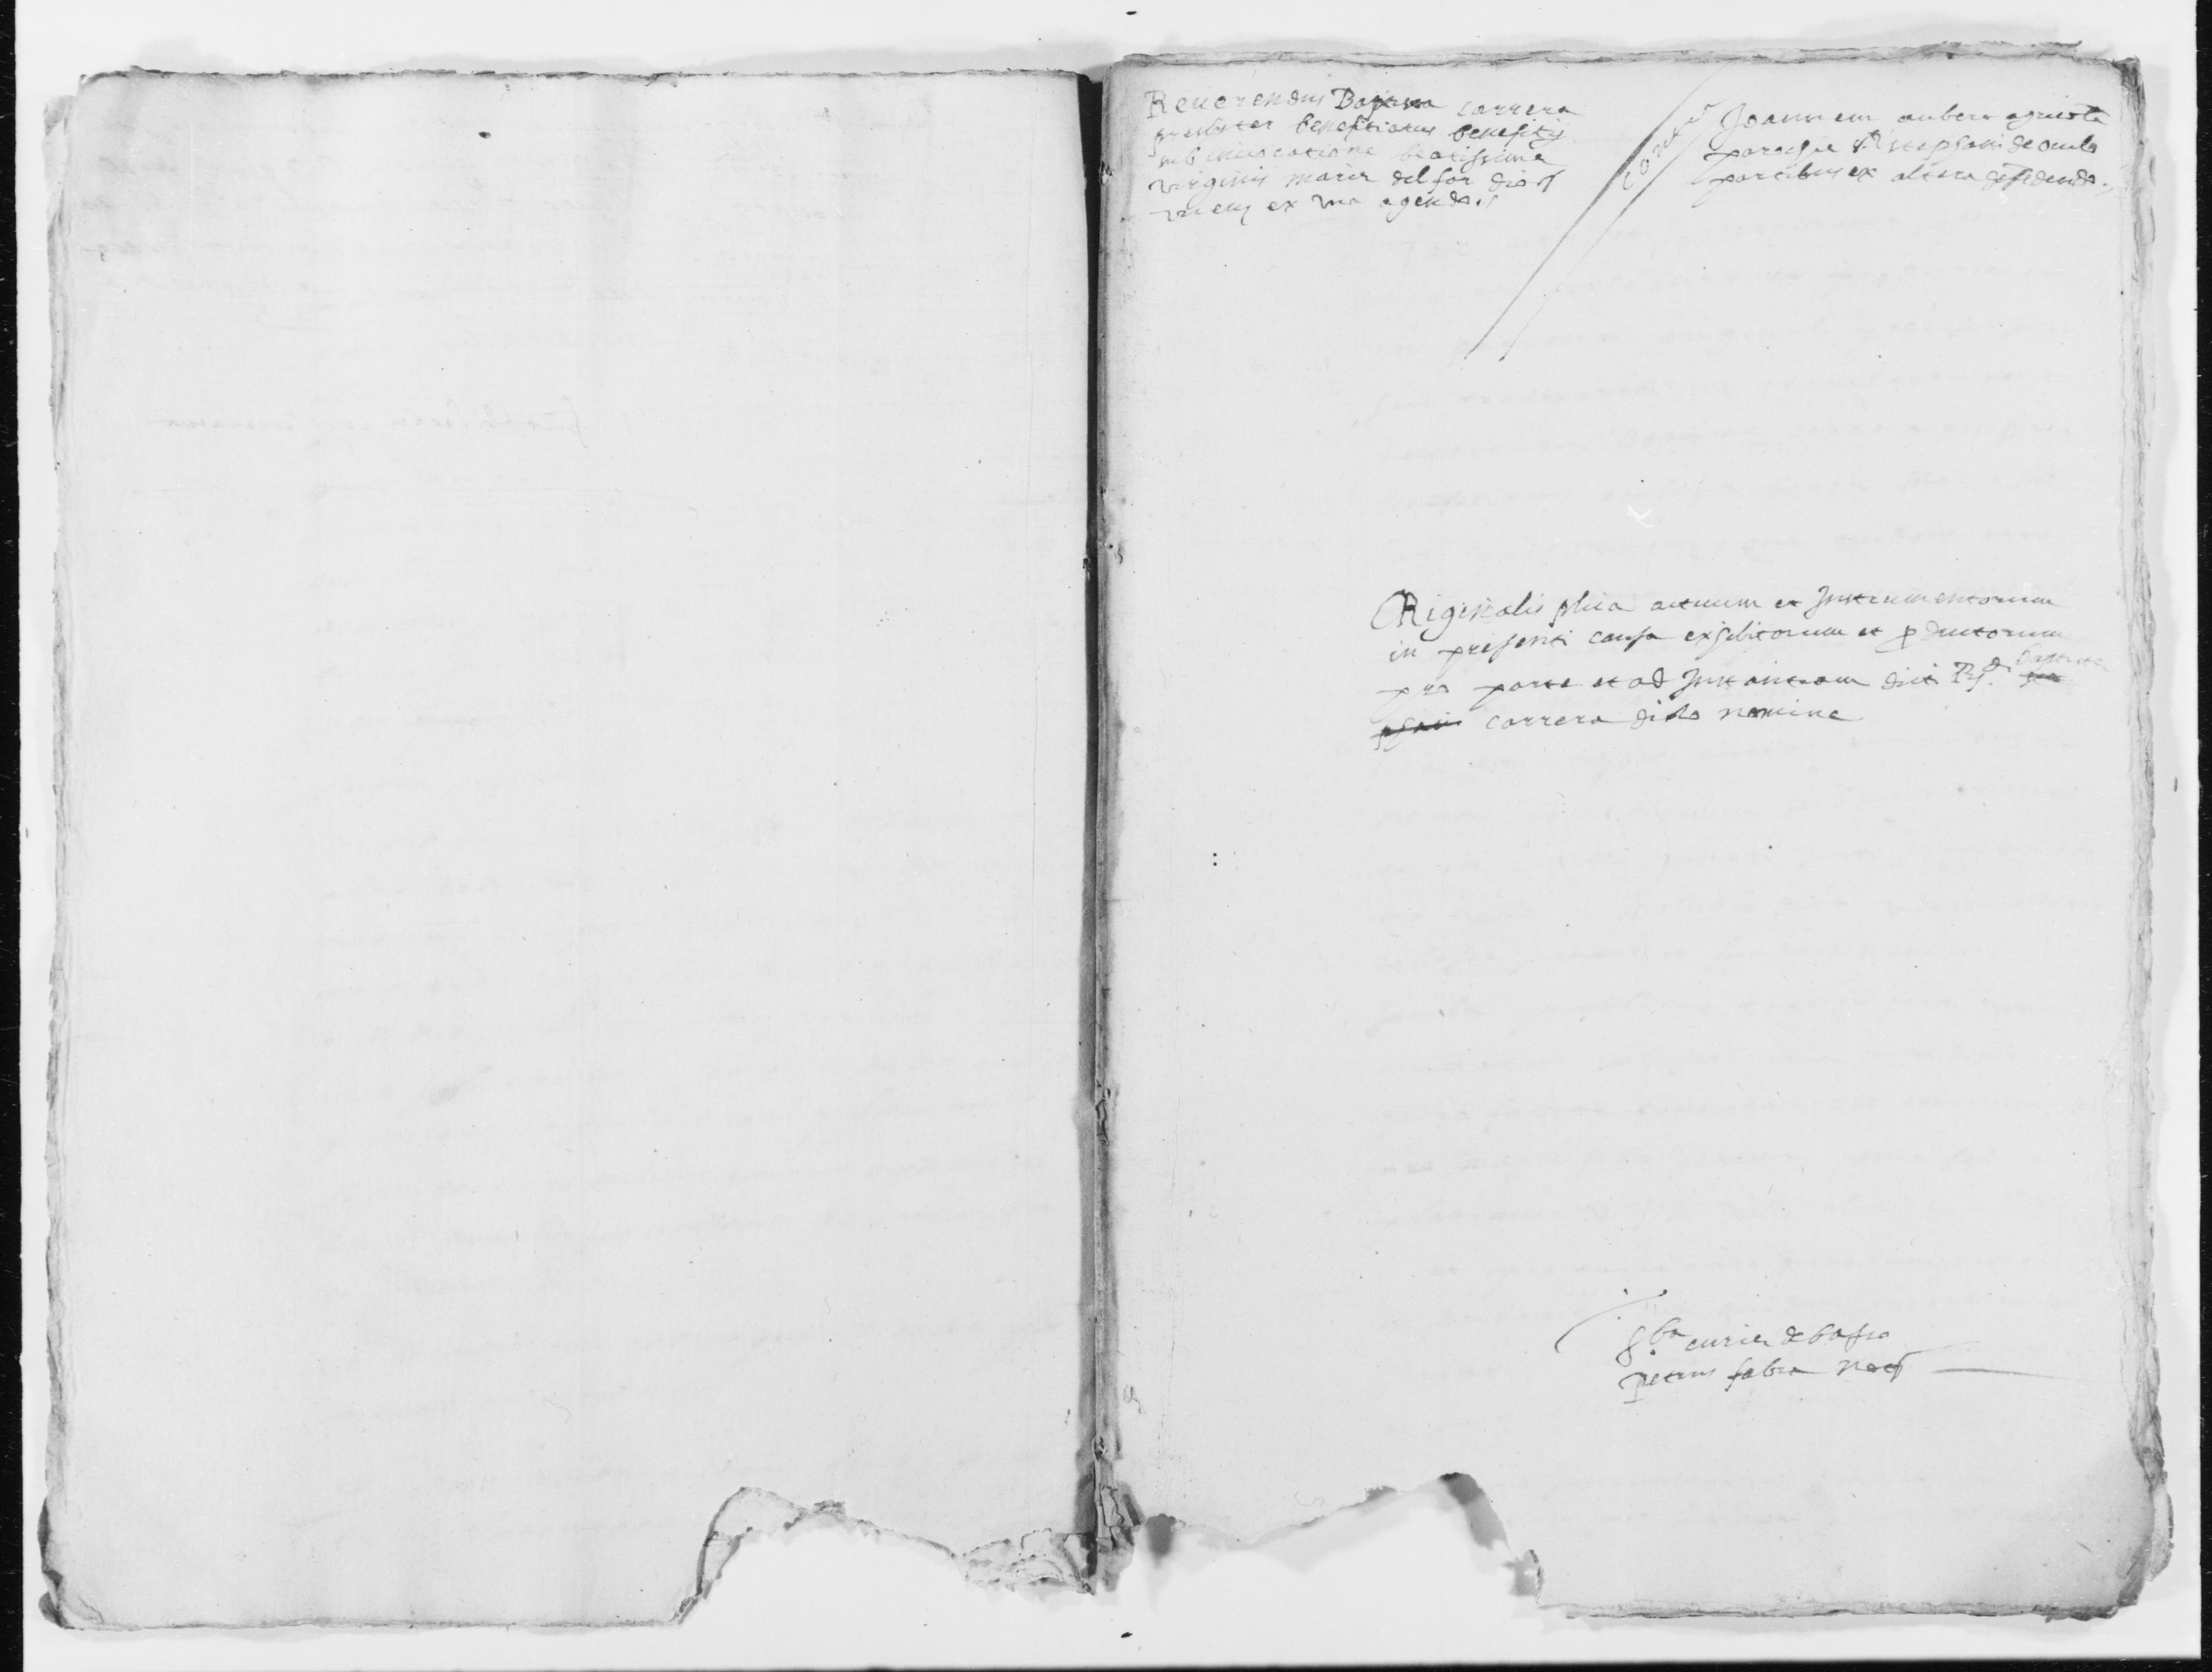 Reuerendus Baptista Carrera
presbiter benefitiatus benefitij
sub inuocatione beatissime
virginis marie del for
ex vna agendo
contra
Joannem aubert
parochie Sti stephani de
partibus ex altera defendendo
ORiginalis plica actuum et Instrumentorum
in presenti causa exhibitorum et productorum
pro parte et ad Instantiam dicti Rdi Baptiste
Carrera dicto nomine
Sba curie de basso
petrus fabra nots